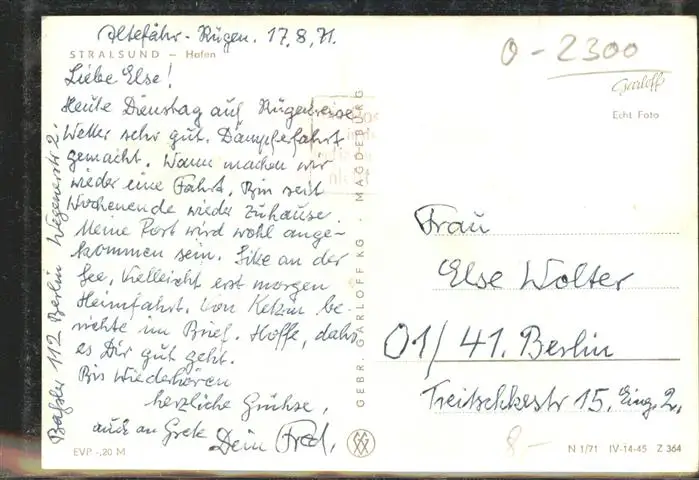 Altefähr - Rügen. 17.8.71.
STRALSUND — Hafen
Liebe Else!
Heute Dienstag auf Rügenreise
Wetter sehr gut. Dampferfahrt
gemacht. Wann machen wir
wieder eine Fahrt. Bin seit
Wochenende wieder zuhause.
Meine Post wird wohl ange-
kommen sein. Sitze an der
See, vielleicht erst morgen
Heimfahrt. Von Ketzin be-
richte im Brief. Hoffe, daß
es Dir gut geht.
Bis Wiederhören
herzliche Grüße,
auch an Grete Dein Fred.
EVP -,20 M
Baßler 112 Berlin Wegenerstr 2.
GEBR. GARLOFF KG · MAGDEBURG
0 - 2300
Garloff
Echt Foto
Frau
Else Wolter
01/41. Berlin
Treitschkestr 15, Eing. 2.
8.-
N 1/71 IV-14-45 Z 364